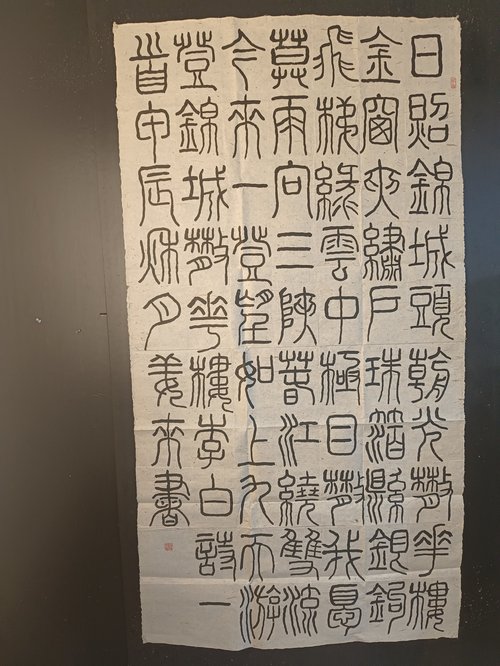 日照錦城頭朝光散華樓
金窗夾繡戶珠箔縣銀鉤
飛梯綠雲中極目散我憂
莫雨向三陝春江繞雙流
今來一登望如上九天游
登錦城散華樓李白詩一
首甲辰秋月姜來書